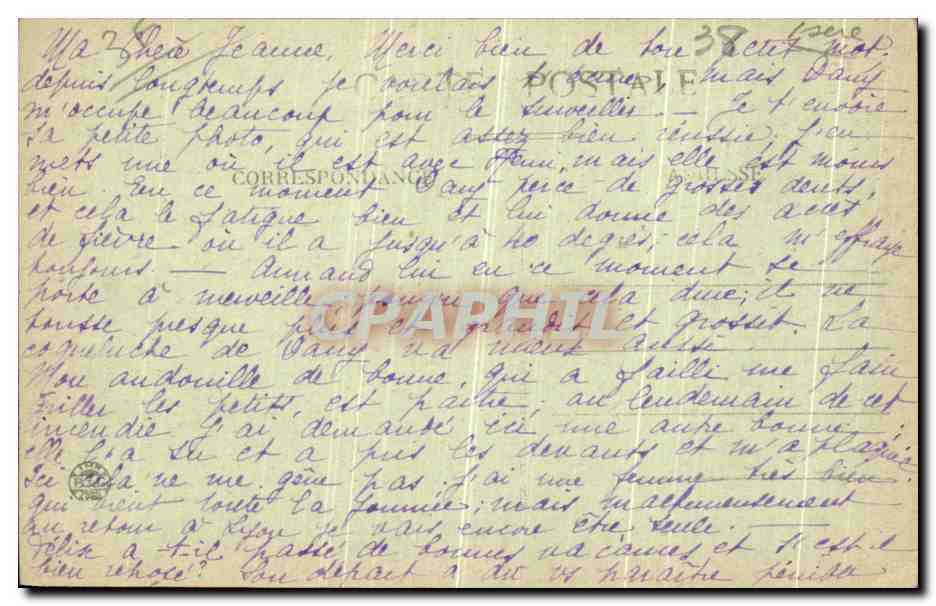 38 Isère
Ma chère Jeanne, Merci bien de ton mot.
CARTE POSTALE
depuis longtemps je voulais mais Dany
m'occupe beaucoup pour le surveiller — Je t'envoie
sa petite photo, qui est assez bien réussie; j'en
mets une où il est avec mais elle est moins
CORRESPONDANCE ADRESSE
bien. En ce moment Dany perce de grosses dents,
et cela le fatigue bien et lui donne des accès
de fièvre où il a jusqu'à 40 degrés; cela m'effraye
toujours. — Armand lui en ce moment se
porte à merveille, pourvu que cela dure; il ne
CPAPHIL
tousse presque plus et grandit et grossit. La
coqueluche de Dany va mieux aussi
Mon andouille de bonne, qui a failli me faire
griller les petits, est partie; au lendemain de cet
incendie j'ai demandé ici une autre bonne
elle l'a su et a pris les devants et m'a plaquée.
Ici cela ne me gêne pas j'ai une femme très bien
qui vient toute la journée; mais malheureusement
au retour à Lyon je vais encore être seule. —
Félix a-t-il passé de bonnes vacances et s'est-il
bien reposé? Son départ a dû vs paraître pénible